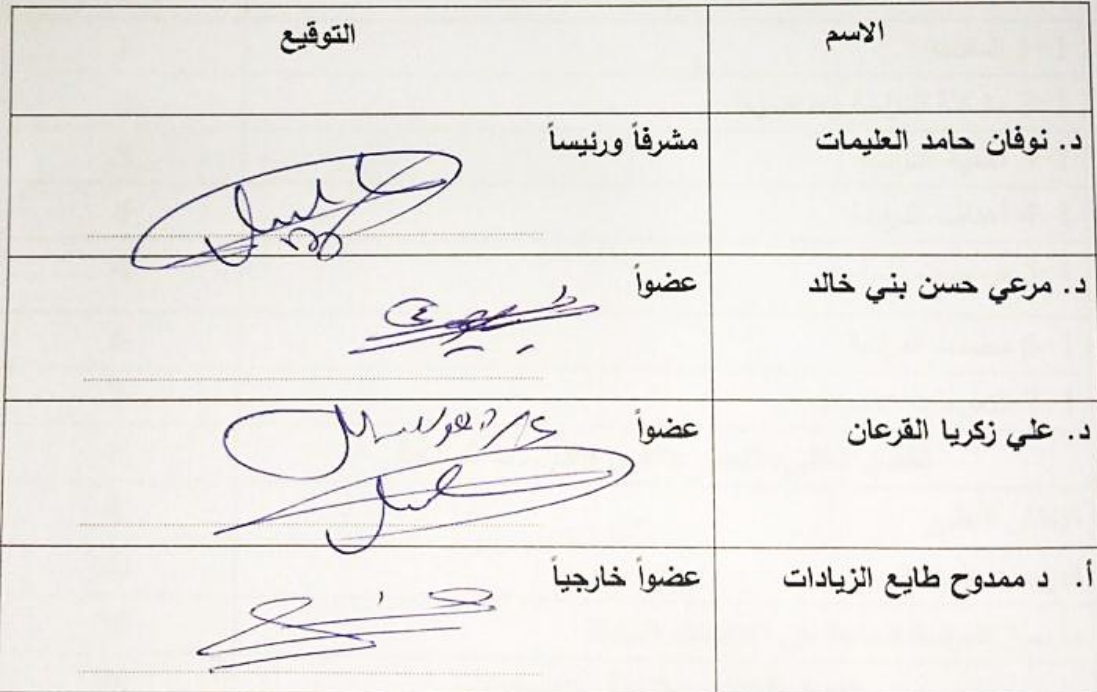 الاسم التوقيع
د. نوفان حامد العليمات مشرفاً ورئيساً
د. مرعي حسن بني خالد عضواً
د. علي زكريا القرعان عضواً
أ. د ممدوح طايع الزيادات عضواً خارجياً